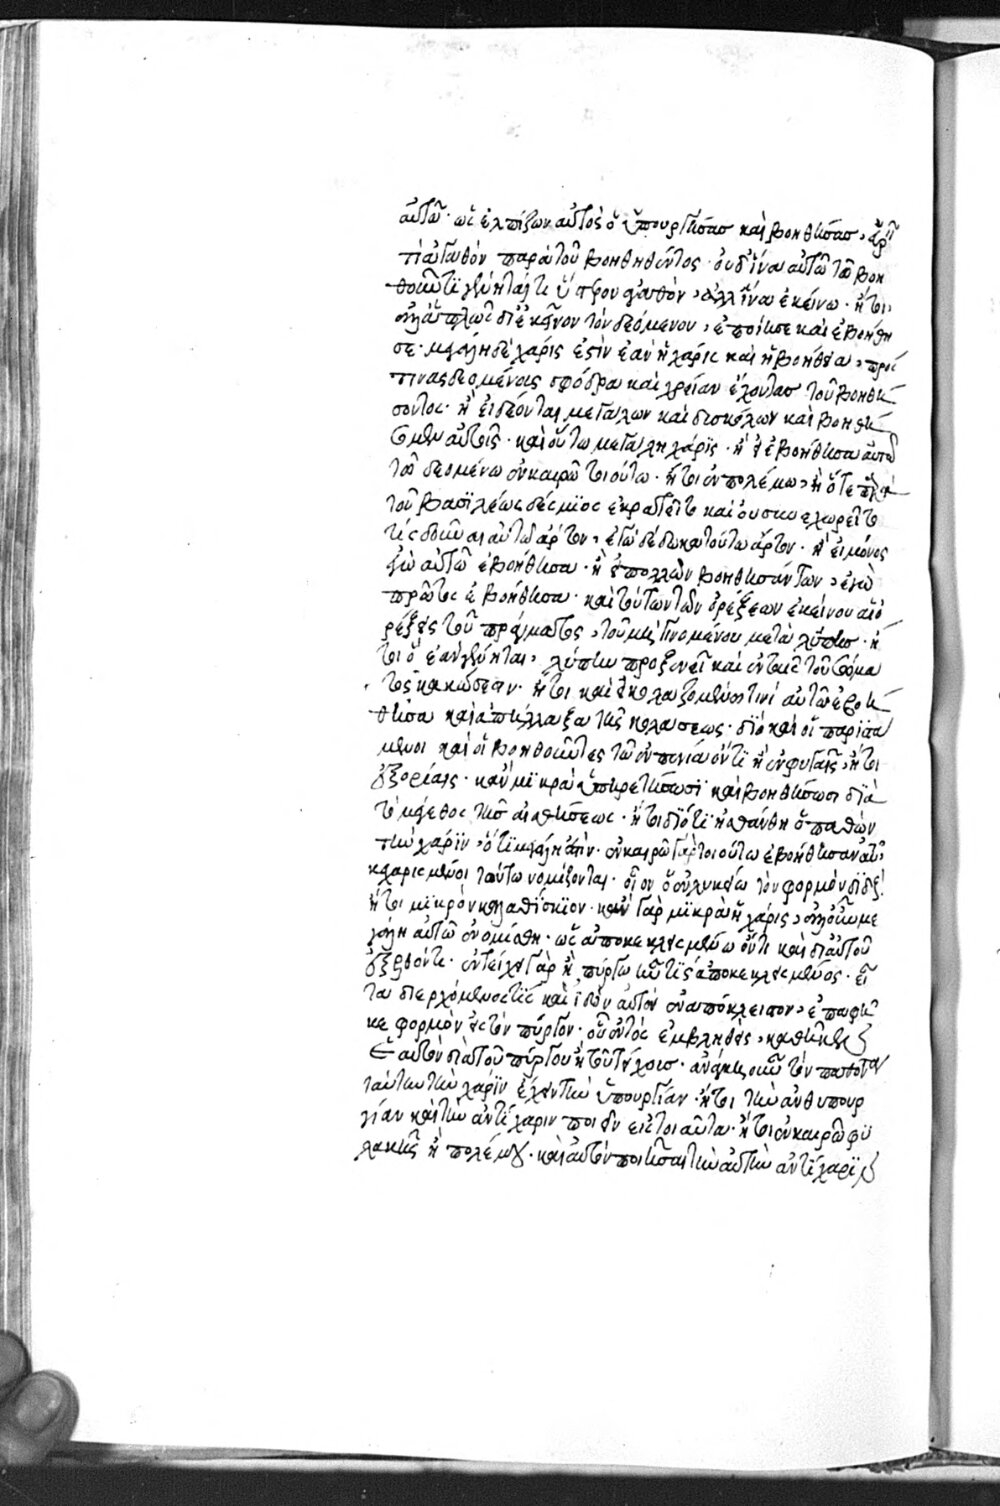 αὐτῶ· ὡς ἐλπίζων αὐτὸς ὁ ὑπουργήσας καὶ βοηθήσας,
τὶ ἀγαθὸν παρὰ τοῦ βοηθηθέντος· οὐδ' ἵνα αὐτῶ τῶ βοη
θοῦντι γένηταί τι ὕστερον ἀγαθὸν, ἀλλ' ἵνα ἐκείνω· ἤτοι
ἀλλ' ἁπλῶς δι' ἐκεῖνον τὸν δεόμενον, ἐποίησε καὶ ἐβοήθη
σε· μεγάλη δὲ χάρις ἐστὶν ἐὰν ἡ χάρις καὶ ἡ βοήθεια, πρὸς
τινας δεομένους σφόδρα καὶ χρείαν ἔχοντας τοῦ βοηθή
σοντος· ἢ εἰ δέονται μεγάλων καὶ δισκόλων καὶ βοηθή
σομεν αὐτοῖς· καὶ οὕτω μεγάλη χάρις· ἢ εἰ ἐβοήθησα αὐτῶ
τῶ δεομένω ἐν καιρῶ τοιούτω· ἤτοι ἐν πολέμω, ἢ ὅτε
τοῦ βασιλέως δέσμιος ἐκρατεῖτο καὶ οὐ συνεχωρεῖτο
τίς δοῦναι αὐτῶ ἄρτον, ἐγὼ δέδωκα τούτω ἄρτον· ἢ εἰ μόνος
ἐγὼ αὐτῶ ἐβοήθησα· ἢ ἐπολλῶν βοηθησάντων, ἐγὼ
πρῶτος ἐβοήθησα· καὶ τούτων τῶν ὀρέξεων ἐκείνου αἱ ὀ
ρέξεις τοῦ πράγματος, τοῦ μὴ γινομένου μετὰ λύπης· ἤ
τοι ὃ ἐὰν γένηται, λύπην προξενεῖ καὶ ἐν ταῖς τοῦ σώμα
τος κακώσεσιν· ἤτοι καὶ εἰ κολαζομένω τινί αὐτῶ ἐβοή
θησα καὶ ἀπήλλαξα τῆς κολάσεως· διὸ καὶ οἱ παριστά
μενοι καὶ οἱ βοηθοῦντες τῶ ἐν πενία ὄντι ἢ ἐν φυγαῖς, ἤτοι
ἐξορίαις· κἂν μικρὰ ὑπηρετήσωσι καὶ βοηθήσωσι διὰ
τὸ μέγεθος τῆς
τὴν χάριν, ὅτι μεγάλη ἐστὶν· ἐν καιρῶ γὰρ τοιούτω ἐβοήθησαν αὐτῶ
κεχαρισμένοι τούτω νομίζονται· οἷον ὁ ἐν λυκείω τὸν φορμὸν
ἤτοι μικρὸν καλαθίσκιον· κἂν γὰρ μικρὰ ἡ χάρις, ἀλλ' οὖν με
γάλη αὐτῶ ἐνομίσθη· ὡς ἀποκεκλεισμένω ὄντι καὶ δι' αὐτοῦ
ἐν τείχει γὰρ ἢ πύργω ἦν τὶς ἀποκεκλεισμένος· εἶ
τα διερχόμενος τίς καὶ ἰδὼν αὐτὸν ἐναπόκλειστον, ἐπαφῆ
κε φορμὸν εἰς τὸν πύργον· οὗ ἐντὸς ἐμβληθεὶς,
αὐτὸν διὰ τοῦ πύργου ἢ τοῦ τείχους· ἀνάγκη οὖν τὸν παθόντα
ταύτην τὴν χάριν ἔχειν τὴν ὑπουργίαν· ἤτοι τὴν ἀνθυπουρ
γίαν καὶ τὴν ἀντίχαριν ποιεῖν εἰς τοιαῦτα· ἤτοι ἐν καιρῶ φυ
λακῆς ἢ πολέμου· καὶ αὐτὸν ποιῆσαι τὴν αὐτὴν ἀντίχαριν